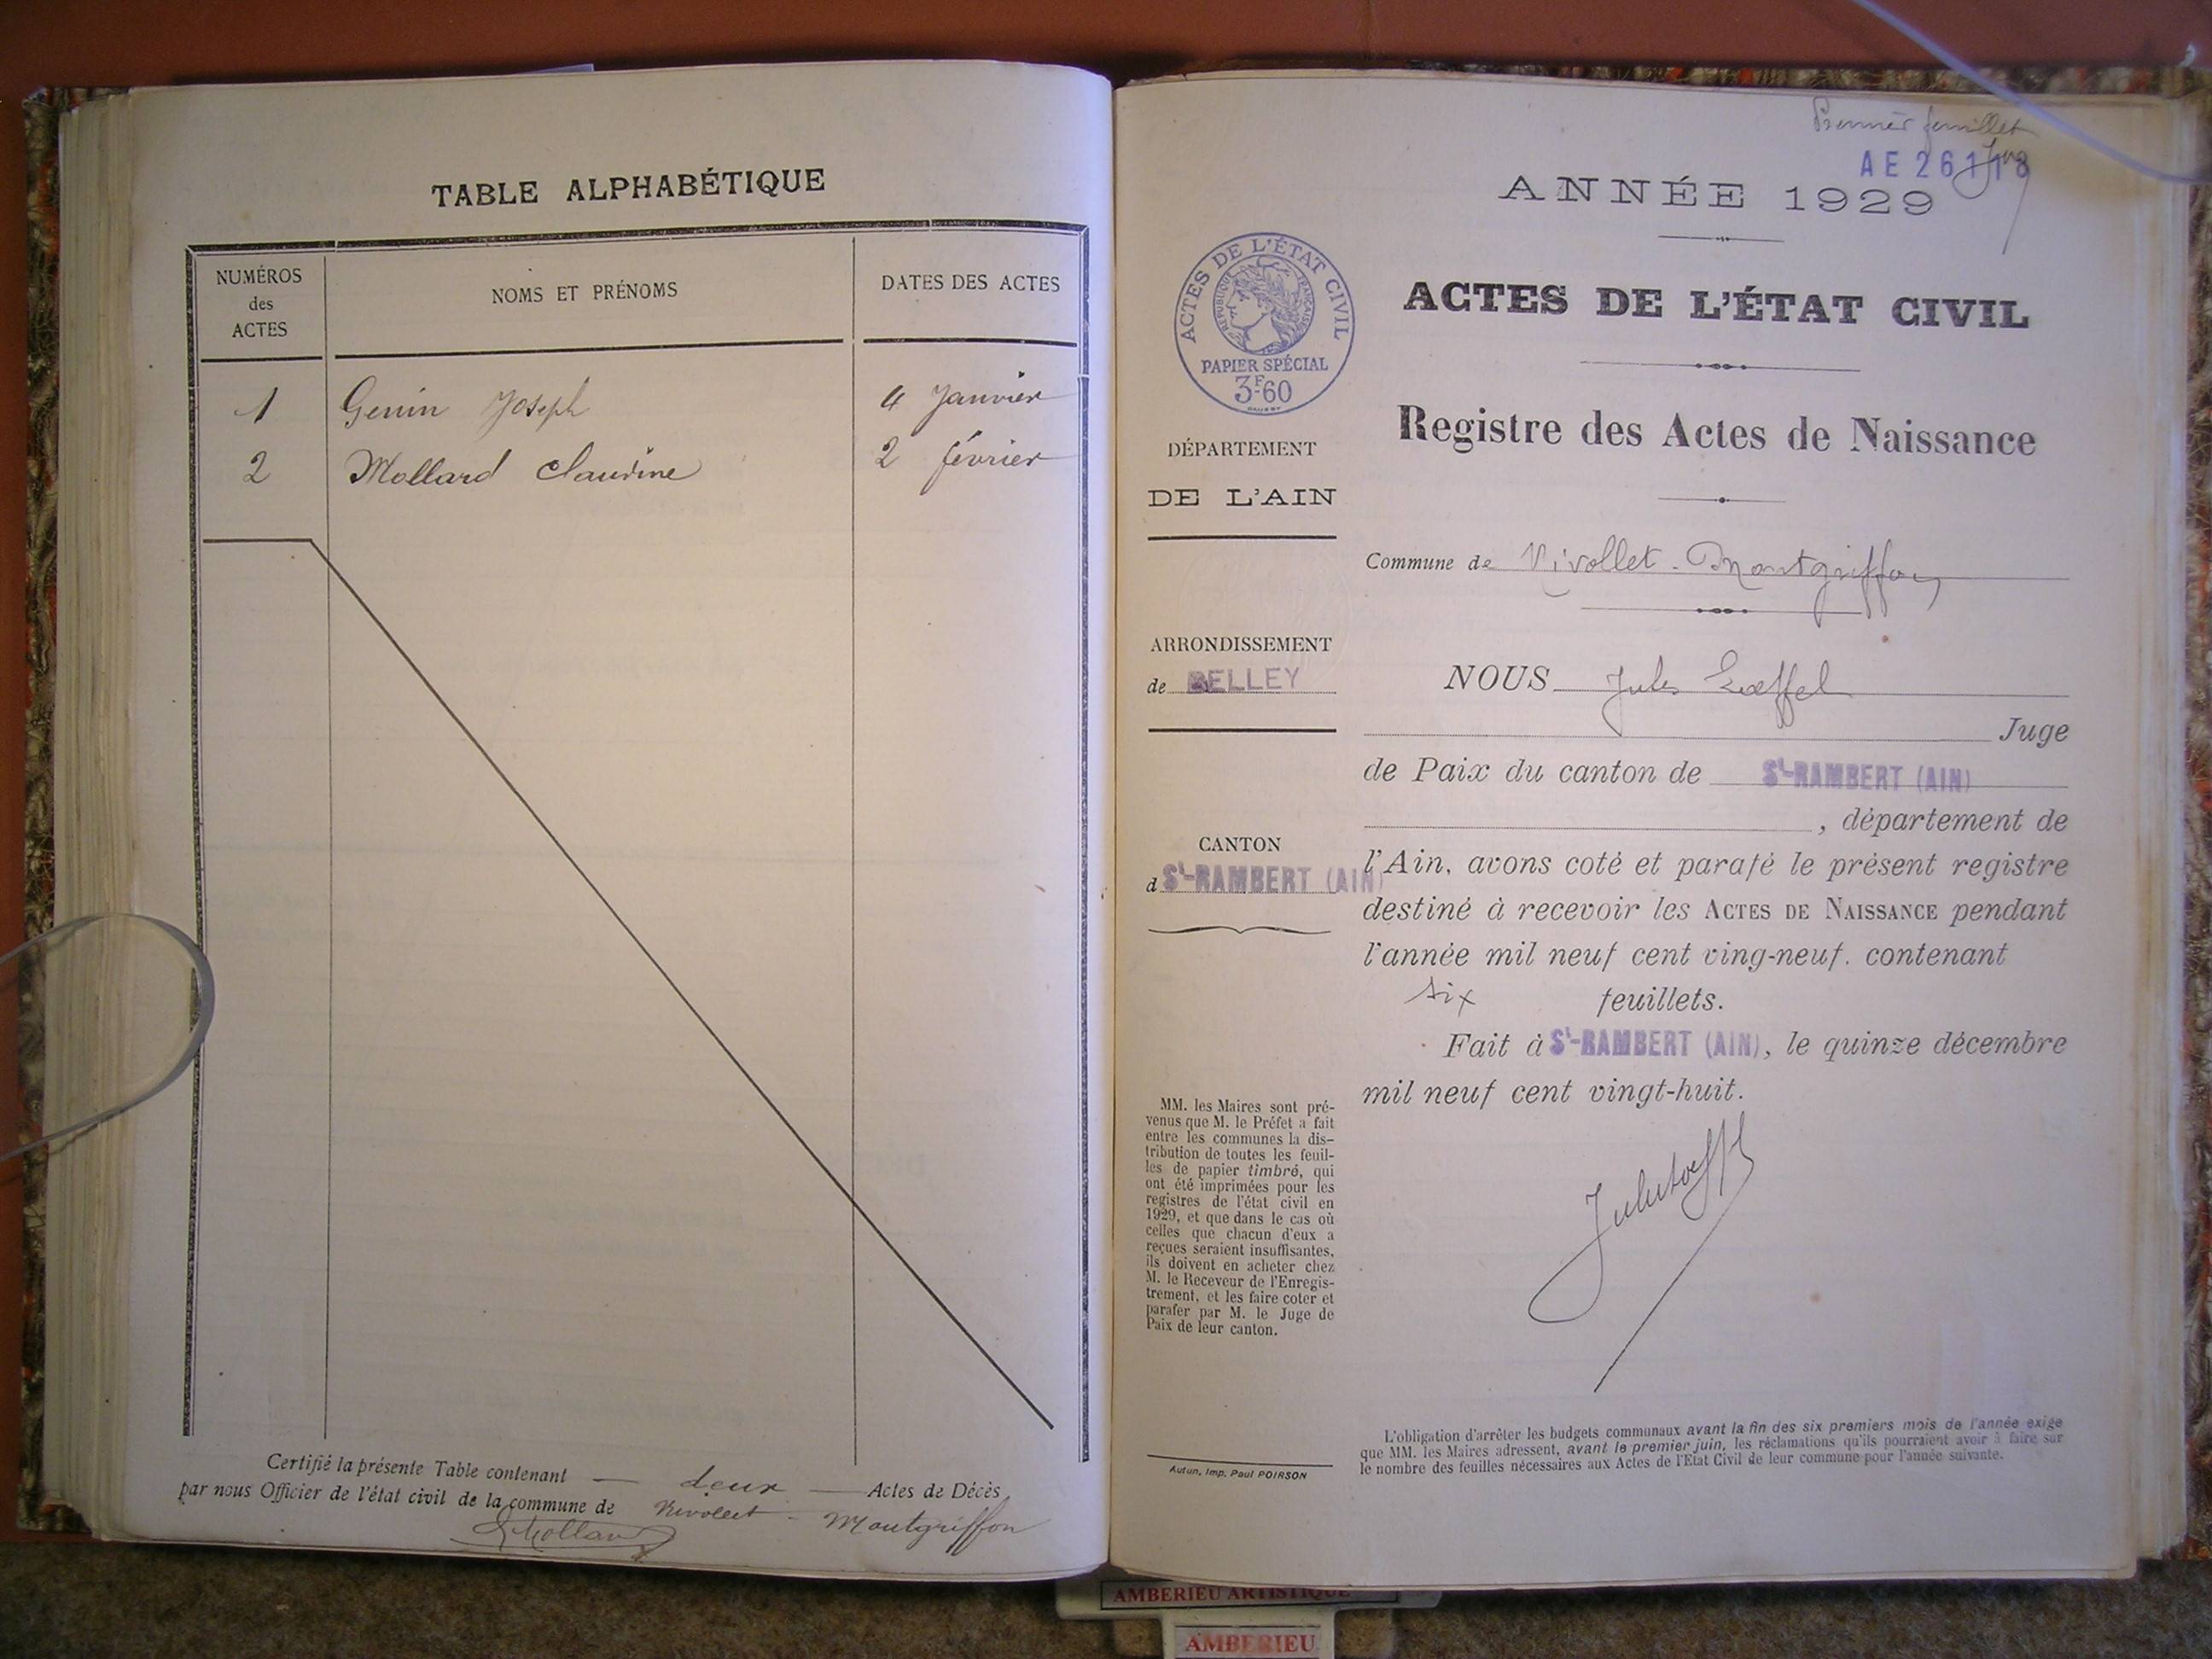 TABLE ALPHABÉTIQUE
NUMÉROS
des
ACTES
NOMS ET PRÉNOMS
DATES DES ACTES
1 Genin Joseph 4 Janvier
2 Mollard Claudine 2 février
Certifié la présente Table contenant — deux — Actes de Décès
par nous Officier de l'état civil de la commune de Nivollet - Montgriffon
Mollard
Premier feuillet
AE 26118
ANNÉE 1929
ACTES DE L'ÉTAT CIVIL
RÉPUBLIQUE FRANÇAISE
PAPIER SPÉCIAL
3F60
ACTES DE L'ÉTAT CIVIL
Registre des Actes de Naissance
DÉPARTEMENT
DE L'AIN
Commune de Nivollet-Montgriffon
ARRONDISSEMENT
de BELLEY
NOUS Jules Loeffel
Juge
de Paix du canton de St-RAMBERT (AIN)
, département de
CANTON
d St-RAMBERT (AIN)
l'Ain, avons coté et parafé le présent registre
destiné à recevoir les ACTES DE NAISSANCE pendant
l'année mil neuf cent ving-neuf. contenant
six feuillets.
Fait à St-RAMBERT (AIN), le quinze décembre
mil neuf cent vingt-huit.
MM. les Maires sont pré-
venus que M. le Préfet a fait
entre les communes la dis-
tribution de toutes les feuil-
les de papier timbré, qui
ont été imprimées pour les
registres de l'état civil en
1929, et que dans le cas où
celles que chacun d'eux a
reçues seraient insuffisantes,
ils doivent en acheter chez
M. le Receveur de l'Enregis-
trement, et les faire coter et
parafer par M. le Juge de
Paix de leur canton.
Autun, Imp. Paul POIRSON
L'obligation d'arrêter les budgets communaux avant la fin des six premiers mois de l'année exige
que MM. les Maires adressent, avant le premier juin, les réclamations qu'ils pourraient avoir à faire sur
le nombre des feuilles nécessaires aux Actes de l'Etat Civil de leur commune pour l'année suivante.
AMBERIEU ARTISTIQUE
AMBERIEU